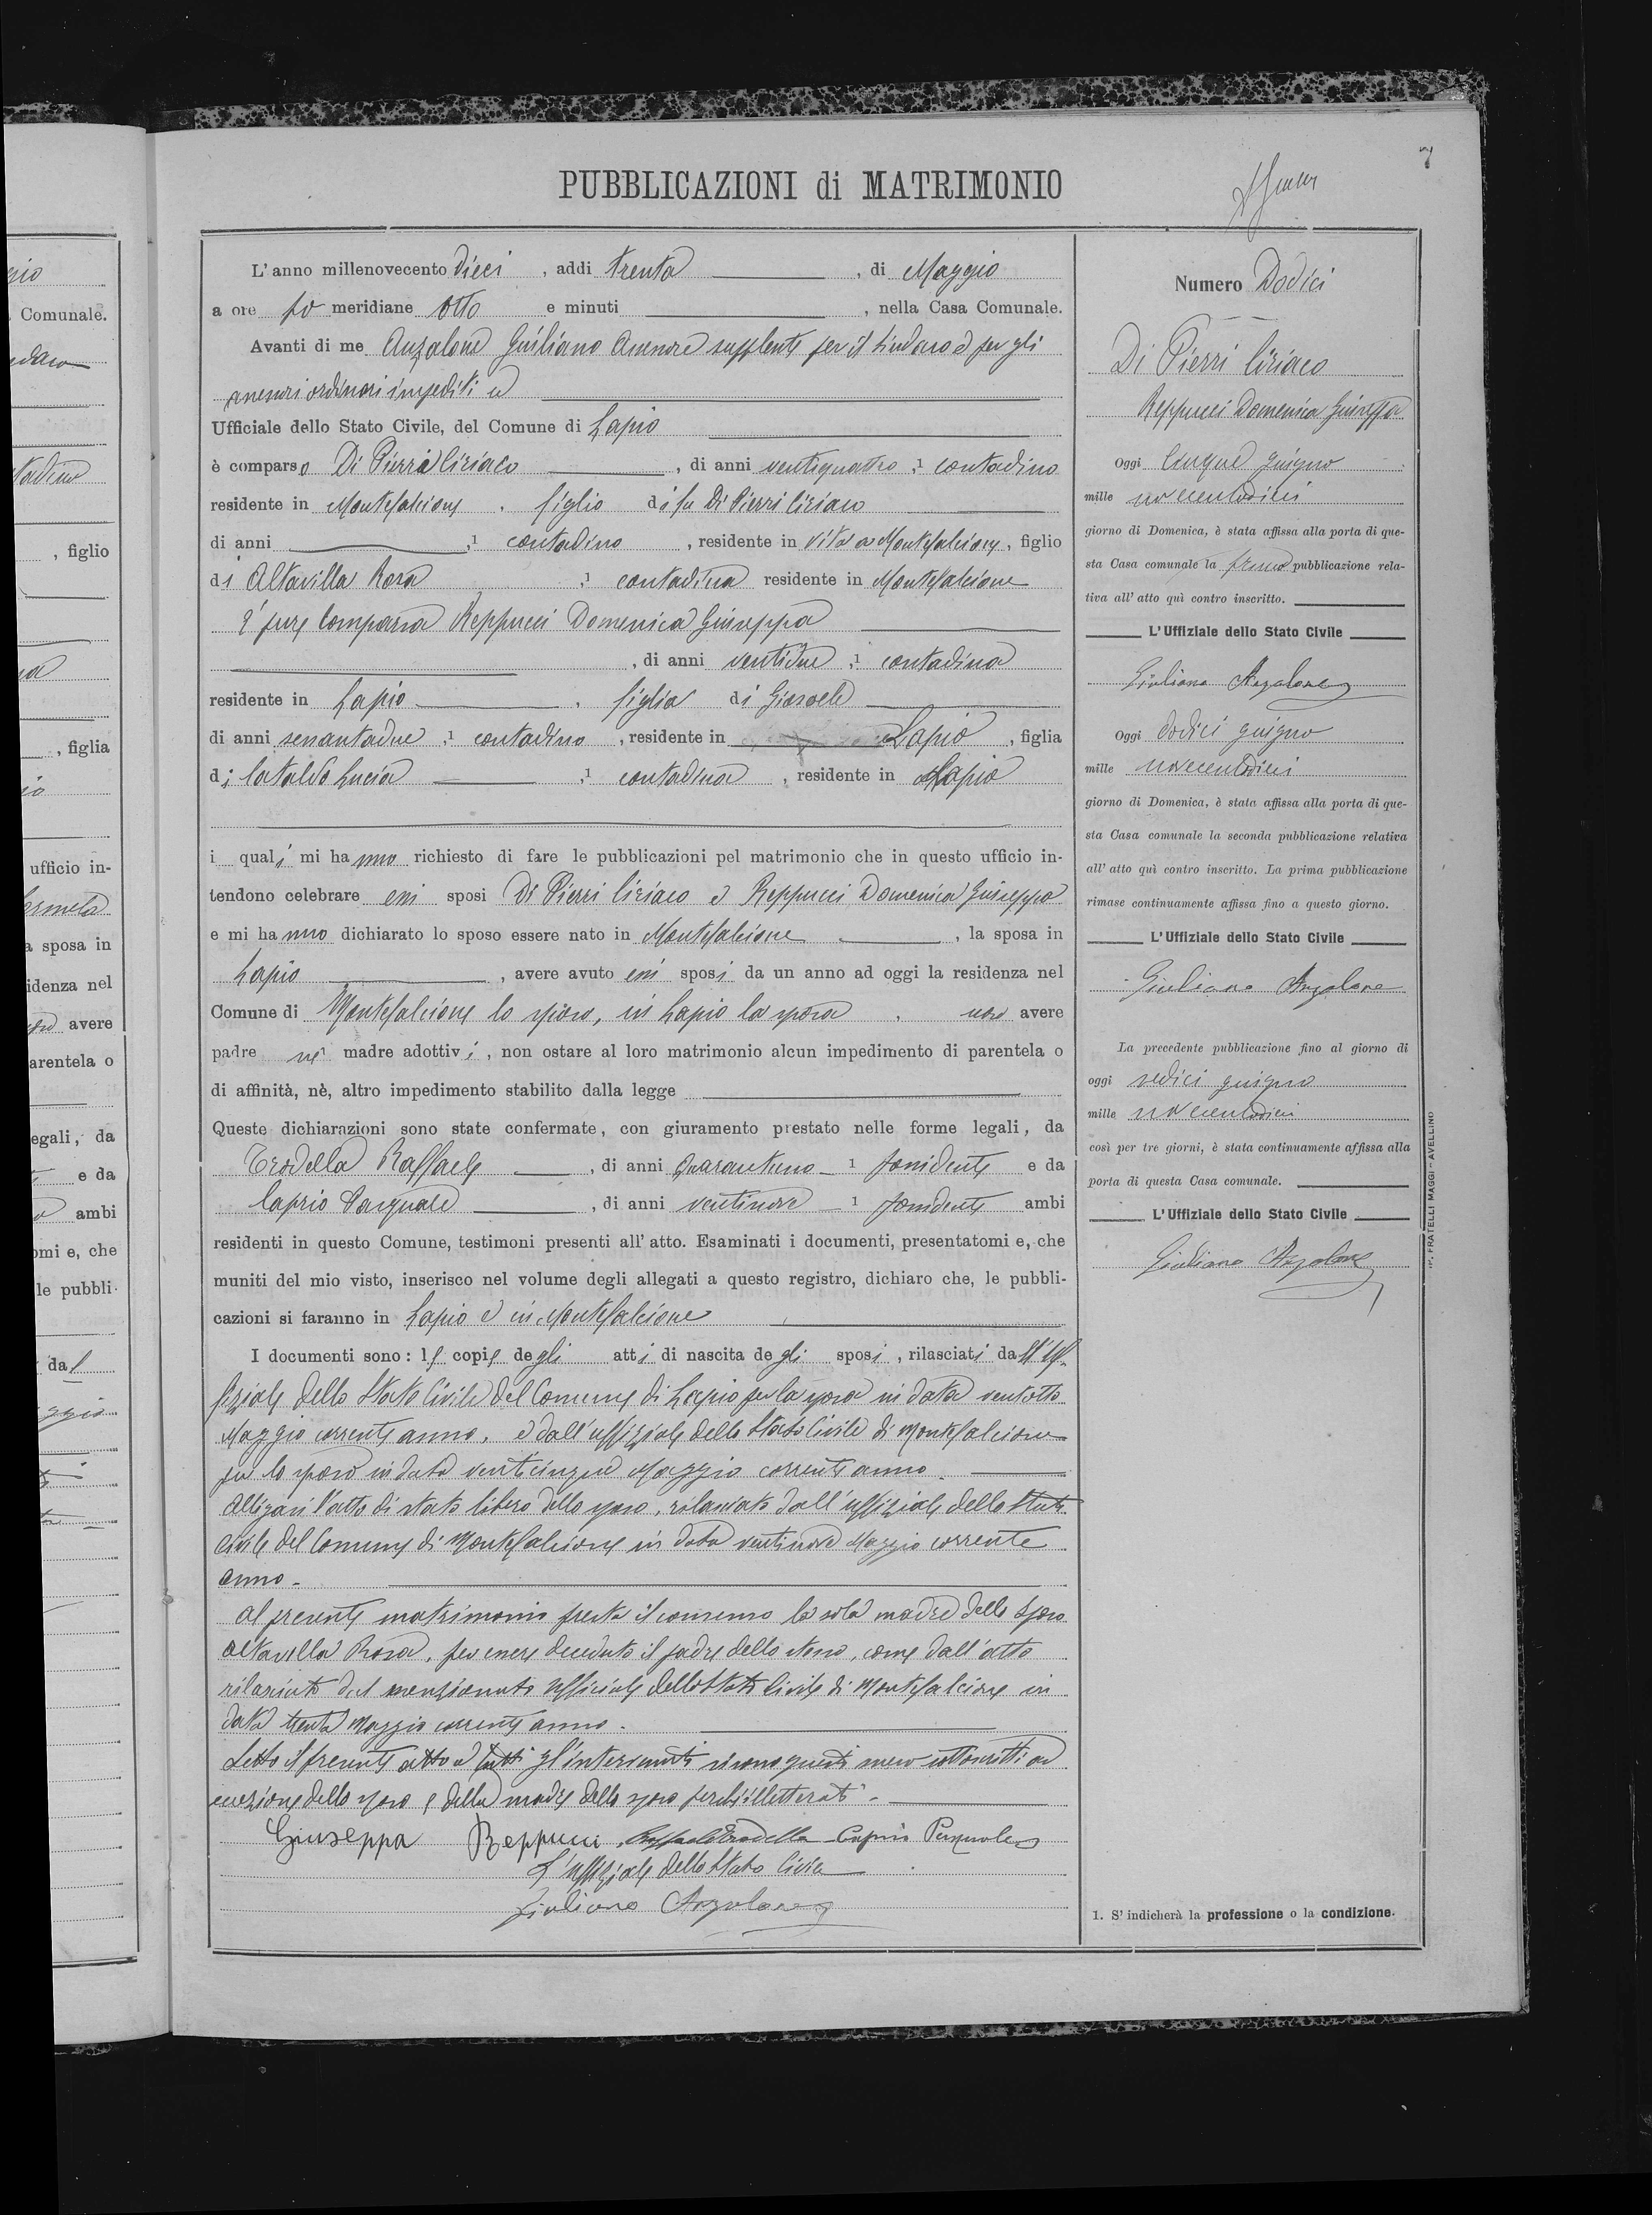 7
PUBBLICAZIONI di MATRIMONIO
L'anno millenovecento dieci, addi trenta, di Maggio
a ore po meridiane otto e minuti, nella Casa Comunale.
Avanti di me Anzalone Giuliano Assessore supplente per il Sindaco e per gli
assessori ordinari impediti
Ufficiale dello Stato Civile, del Comune di Lapio
è comparso Di Pierri Ciriaco, di anni ventiquattro,¹ contadino
residente in Montefalcione, figlio di fu Di Pierri Ciriaco
di anni,¹ contadino, residente in vita a Montefalcione, figlio
di Altavilla Rosa,¹ contadina residente in Montefalcione
È pure comparsa Reppucci Domenica Giuseppa
, di anni ventidue,¹ contadina
residente in Lapio, figlia di Giosoele
di anni sessantadue,¹ contadino, residente in Lapio, figlia
di Cataldo Lucia,¹ contadina, residente in Lapio
i quali mi hanno richiesto di fare le pubblicazioni pel matrimonio che in questo ufficio in-
tendono celebrare essi sposi Di Pierri Ciriaco e Reppucci Domenica Giuseppa
e mi hanno dichiarato lo sposo essere nato in Montefalcione, la sposa in
Lapio, avere avuto essi sposi da un anno ad oggi la residenza nel
Comune di Montefalcione lo sposo, in Lapio la sposa, non avere
padre nè madre adottivi, non ostare al loro matrimonio alcun impedimento di parentela o
di affinità, nè, altro impedimento stabilito dalla legge
Queste dichiarazioni sono state confermate, con giuramento prestato nelle forme legali, da
Trodella Raffaele, di anni quarantuno ¹ possidente e da
Caprio Pasquale, di anni ventinove ¹ possidente ambi
residenti in questo Comune, testimoni presenti all'atto. Esaminati i documenti, presentatomi e, che
muniti del mio visto, inserisco nel volume degli allegati a questo registro, dichiaro che, le pubbli-
cazioni si faranno in Lapio e in Montefalcione
I documenti sono: le copie degli atti di nascita degli sposi, rilasciati dall'Uf-
fiziale dello Stato Civile del Comune di Lapio per la sposa in data ventotto
Maggio corrente anno, e dall'uffiziale dello Stato Civile di Montefalcione
per lo sposo in data venticinque Maggio corrente anno.
Allegasi l'atto di stato libero dello sposo, rilasciato dall'uffiziale dello Stato
civile del Comune di Montefalcione in data ventinove Maggio corrente
anno.
Al presente matrimonio presta il consenso la sola madre dello sposo
Altavilla Rosa, per essere deceduto il padre dello stesso, come dall'atto
rilasciato dal menzionato Ufficiale dello Stato Civile di Montefalcione in
data trenta Maggio corrente anno.
Letto il presente atto a tutti gl'intervenuti si sono questi meco sottoscritti ad
eccezione dello sposo e della madre dello sposo perchè illetterati.
Giuseppa Reppucci Raffaele Trodella Caprio Pasquale
L'uffiziale dello Stato Civile
Giuliano Anzalone
Numero Dodici
Di Pierri Ciriaco
Reppucci Domenica Giuseppa
Oggi cinque giugno
mille novecentodieci
giorno di Domenica, è stata affissa alla porta di que-
sta Casa comunale la prima pubblicazione rela-
tiva all'atto quì contro inscritto.
L'Uffiziale dello Stato Civile
Giuliano Anzalone
Oggi dodici giugno
mille novecentodieci
giorno di Domenica, è stata affissa alla porta di que-
sta Casa comunale la seconda pubblicazione relativa
all'atto quì contro inscritto. La prima pubblicazione
rimase continuamente affissa fino a questo giorno.
L'Uffiziale dello Stato Civile
Giuliano Anzalone
La precedente pubblicazione fino al giorno di
oggi sedici giugno
mille novecentodieci
così per tre giorni, è stata continuamente affissa alla
porta di questa Casa comunale.
L'Uffiziale dello Stato Civile
Giuliano Anzalone
1. S'indicherà la professione o la condizione.
FRATELLI MAGGI - AVELLINO
Comunale.
, figlio
, figlia
ufficio in-
a sposa in
idenza nel
avere
arentela o
egali, da
e da
ambi
omi e, che
le pubbli-
dal